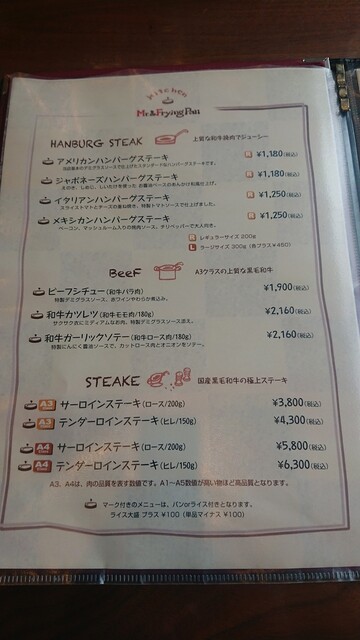 kitchen
Mr.&Frying Pan
HANBURG STEAK 上質な和牛鶏肉でジューシー
アメリカンハンバーグステーキ R ¥1,180(税込)
ジャポネーズハンバーグステーキ R ¥1,180(税込)
イタリアンハンバーグステーキ R ¥1,250(税込)
スライストマトとチーズの重ね焼き、特製トマトソースで仕上げました。
メキシカンハンバーグステーキ R ¥1,250(税込)
ベーコン、マッシュルーム入りの焼肉ソース、チリペッパーで大人向き。
R レギュラーサイズ 200g
L ラージサイズ 300g (各プラス¥450)
BeeF A3クラスの上質な黒毛和牛
ビーフシチュー(和牛バラ肉) ¥1,900(税込)
特製デミグラスソース、赤ワインでやわらか煮込み。
和牛カツレツ(和牛モモ肉/180g) ¥2,160(税込)
サクサク衣にミディアムなお肉、特製デミグラスソース添え。
和牛ガーリックソテー(和牛ロース肉/180g) ¥2,160(税込)
特製にんにく醤油ソースで、カットロース肉とオニオンをソテー。
STEAKE 国産黒毛和牛の極上ステーキ
A3 サーロインステーキ(ロース/200g) ¥3,800(税込)
A3 テンダーロインステーキ(ヒレ/150g) ¥4,300(税込)
A4 サーロインステーキ(ロース/200g) ¥5,800(税込)
A4 テンダーロインステーキ(ヒレ/150g) ¥6,300(税込)
A3、A4は、肉の品質を表す数値です。A1〜A5数値が高い物ほど高品質となります。
マーク付きのメニューは、パンorライス付きとなります。
ライス大盛 プラス ¥100 (単品マイナス ¥100)